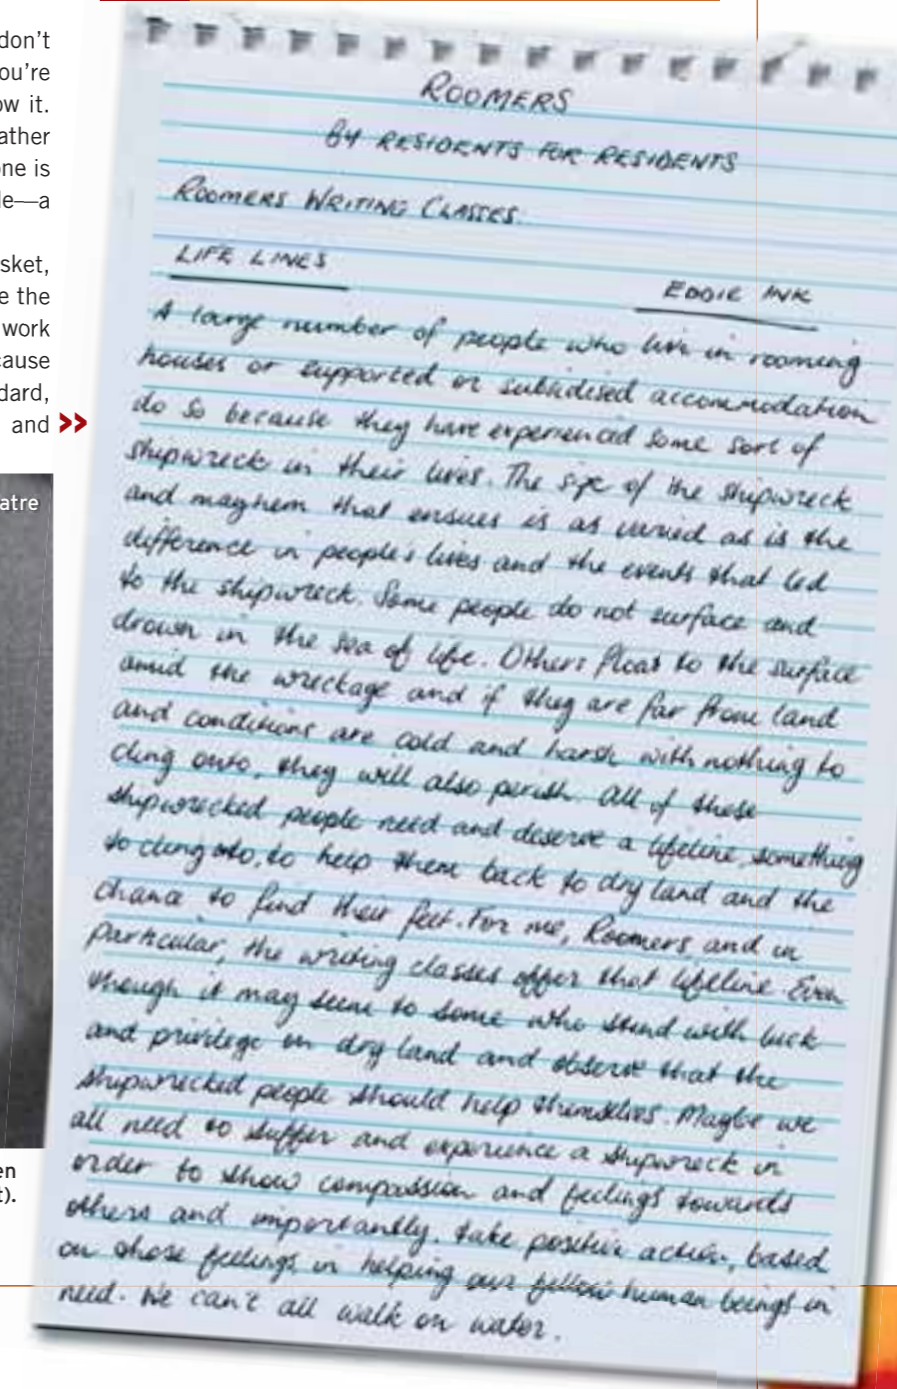 don't
ou're
ow it.
ather
one is
le—a
sket,
e the
work
cause
dard,
and >>
atre
en
t).
ROOMERS
BY RESIDENTS FOR RESIDENTS
ROOMERS WRITING CLASSES.
LIFE LINES
EDDIE INK
A large number of people who live in rooming
houses or supported or subsidised accommodation
do so because they have experienced some sort of
shipwreck in their lives. The size of the shipwreck
and mayhem that ensues is as varied as is the
difference in people's lives and the events that led
to the shipwreck. Some people do not surface and
drown in the sea of life. Others float to the surface
amid the wreckage and if they are far from land
and conditions are cold and harsh with nothing to
cling onto, they will also perish. All of these
shipwrecked people need and deserve a lifeline, something
to cling to, to help them back to dry land and the
chance to find their feet. For me, Roomers, and in
particular, the writing classes offer that lifeline. Even
though it may seem to some who stand with luck
and privilege on dry land and observe that the
shipwrecked people should help themselves. Maybe we
all need to suffer and experience a shipwreck in
order to show compassion and feelings towards
others and importantly, take positive action, based
on those feelings, in helping our fellow human beings in
need. We can't all walk on water.